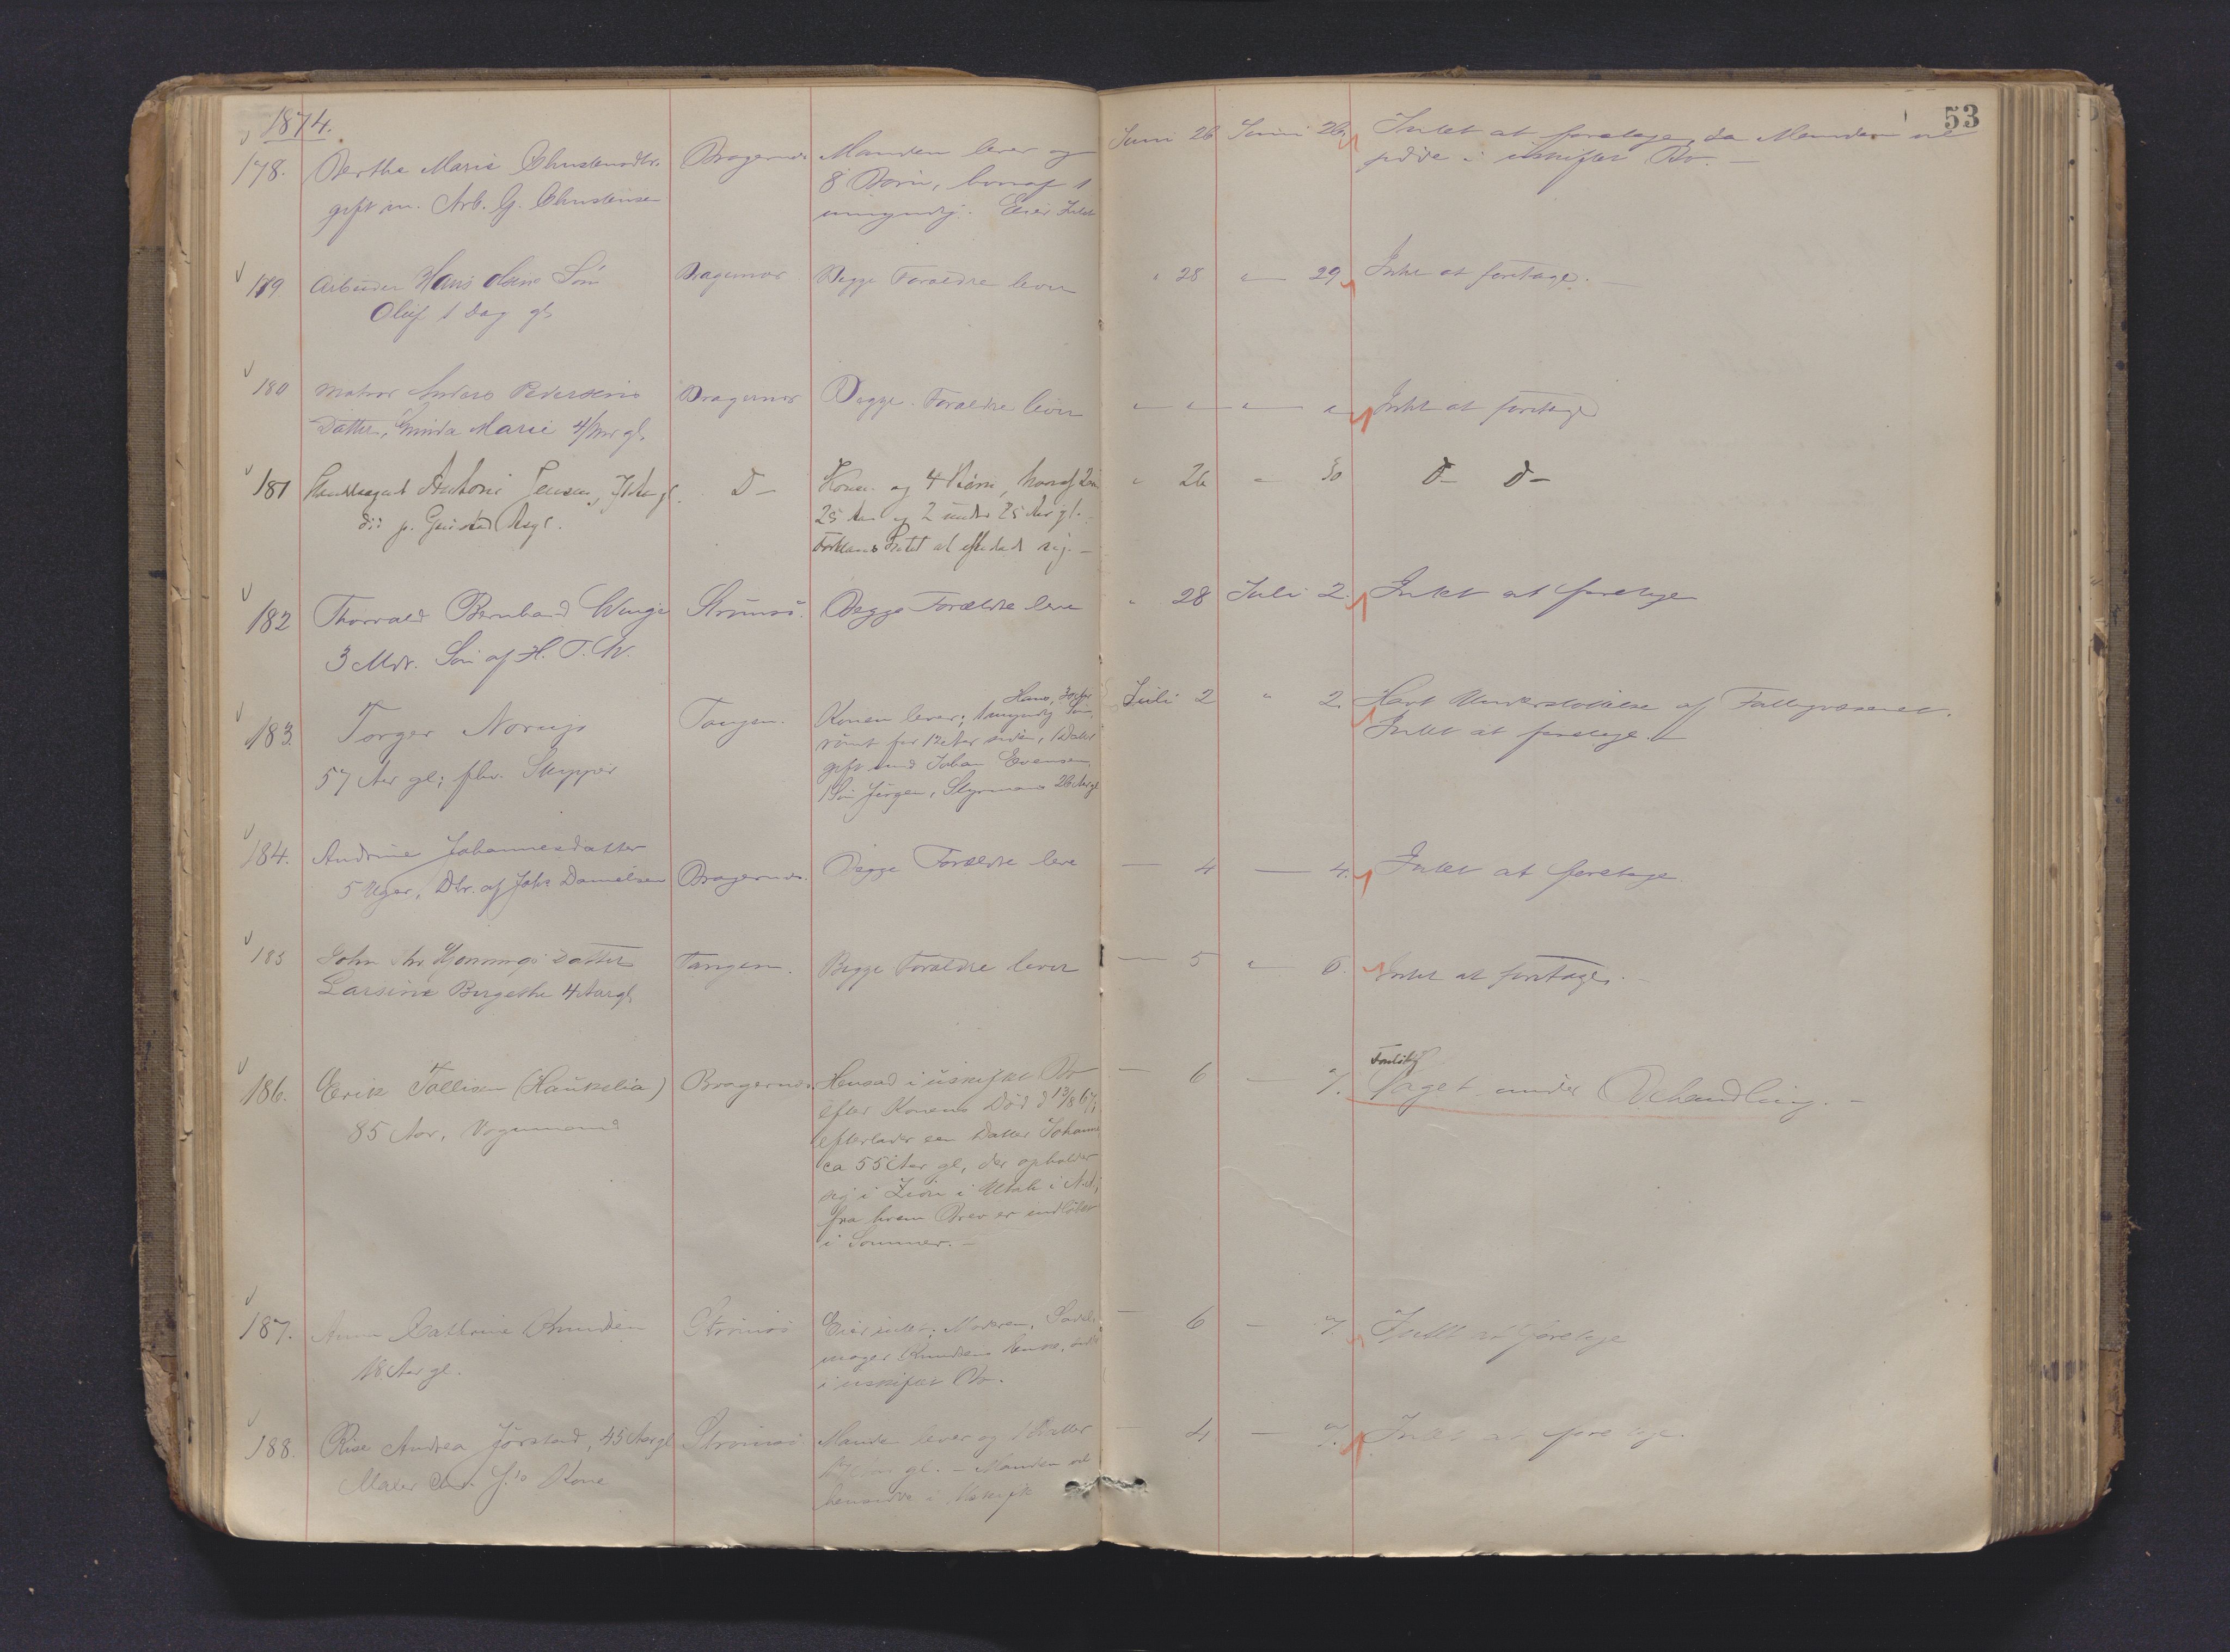 53
1874.
178. Berthe Marie Christensdtr. Bragernes Manden lever og Juni 26 Juni 26 Intet at foretage, da Manden vil
gift m. Arb. G. Christensen 8 Børn, hvoraf 1 sidde i uskiftet Bo. —
umyndig. Eier Intet
179 Arbeider Hans Olsens Søn Bragernes Begge Forældre lever " 28 " 29 Intet at foretage. —
Oluf 1 Dag gl.
180 Matros Anders Pedersens Bragernes Begge Forældre lever " " " " Intet at foretage
Datter, Marie 4 gl.
181 Antoni Jensen, D— Konen og 4 Børn, hvoraf 2 " 26 " 30 D— D—
25 Aar og 2 under 25 Aar gl.
Intet at efterlade sig. —
182 Thorvald Bernhard Winge Strømsø. Begge Forældre leve " 28 Juli 2. Intet at foretage
3 Mdr. Søn af H. T. W.
183. Torger Tangen. Konen lever; 1 umyndig Søn Hans, Juli 2 " 2. Havt Understøttelse af Fattigvæsenet.
57 Aar gl; fhv. Skipper rømt for 12 Aar siden, 1 Datter Intet at foretage. —
gift med Johan Evensen,
1 Søn Jørgen, Styrmand 26 Aar gl
184. Andrine Johannesdatter Begge Forældre leve — 4 — 4. Intet at foretage
5 Uger, Dtr. af Johs Danielsen Bragernes.
185 John Chr Hennings Datter Tangen. Begge Forældre lever — 5 " 6. Intet at foretage. —
Larsine Birgethe 4 Aar gl.
186. Erik Tollefsen (Haukelia) Bragernes. Hensad i uskiftet Bo — 6 — 7. Foreløbig
85 Aar, Vognmand efter Konens Død d 13/8 67; Taget under Behandling. —
efterlader een Datter Johanne
ca 55 Aar gl, der opholder
sig i Zion i Utah i N.A,
fra hvem Brev er indløbet
i Sommer. —
187. Anna Cathrine Knudsen Strømsø Eier intet; Moderen, Sadel- — 6 — 7. Intet at foretage
18 Aar gl. mager Knudsens Enke, sidder
i uskiftet Bo.
188. Andrea Jørstad, 45 Aar gl Strømsø Manden lever og 1 Datter — 4 — 7. Intet at foretage.
Maler Chr. J.s Kone Aar gl. — Manden vil
hensidde i